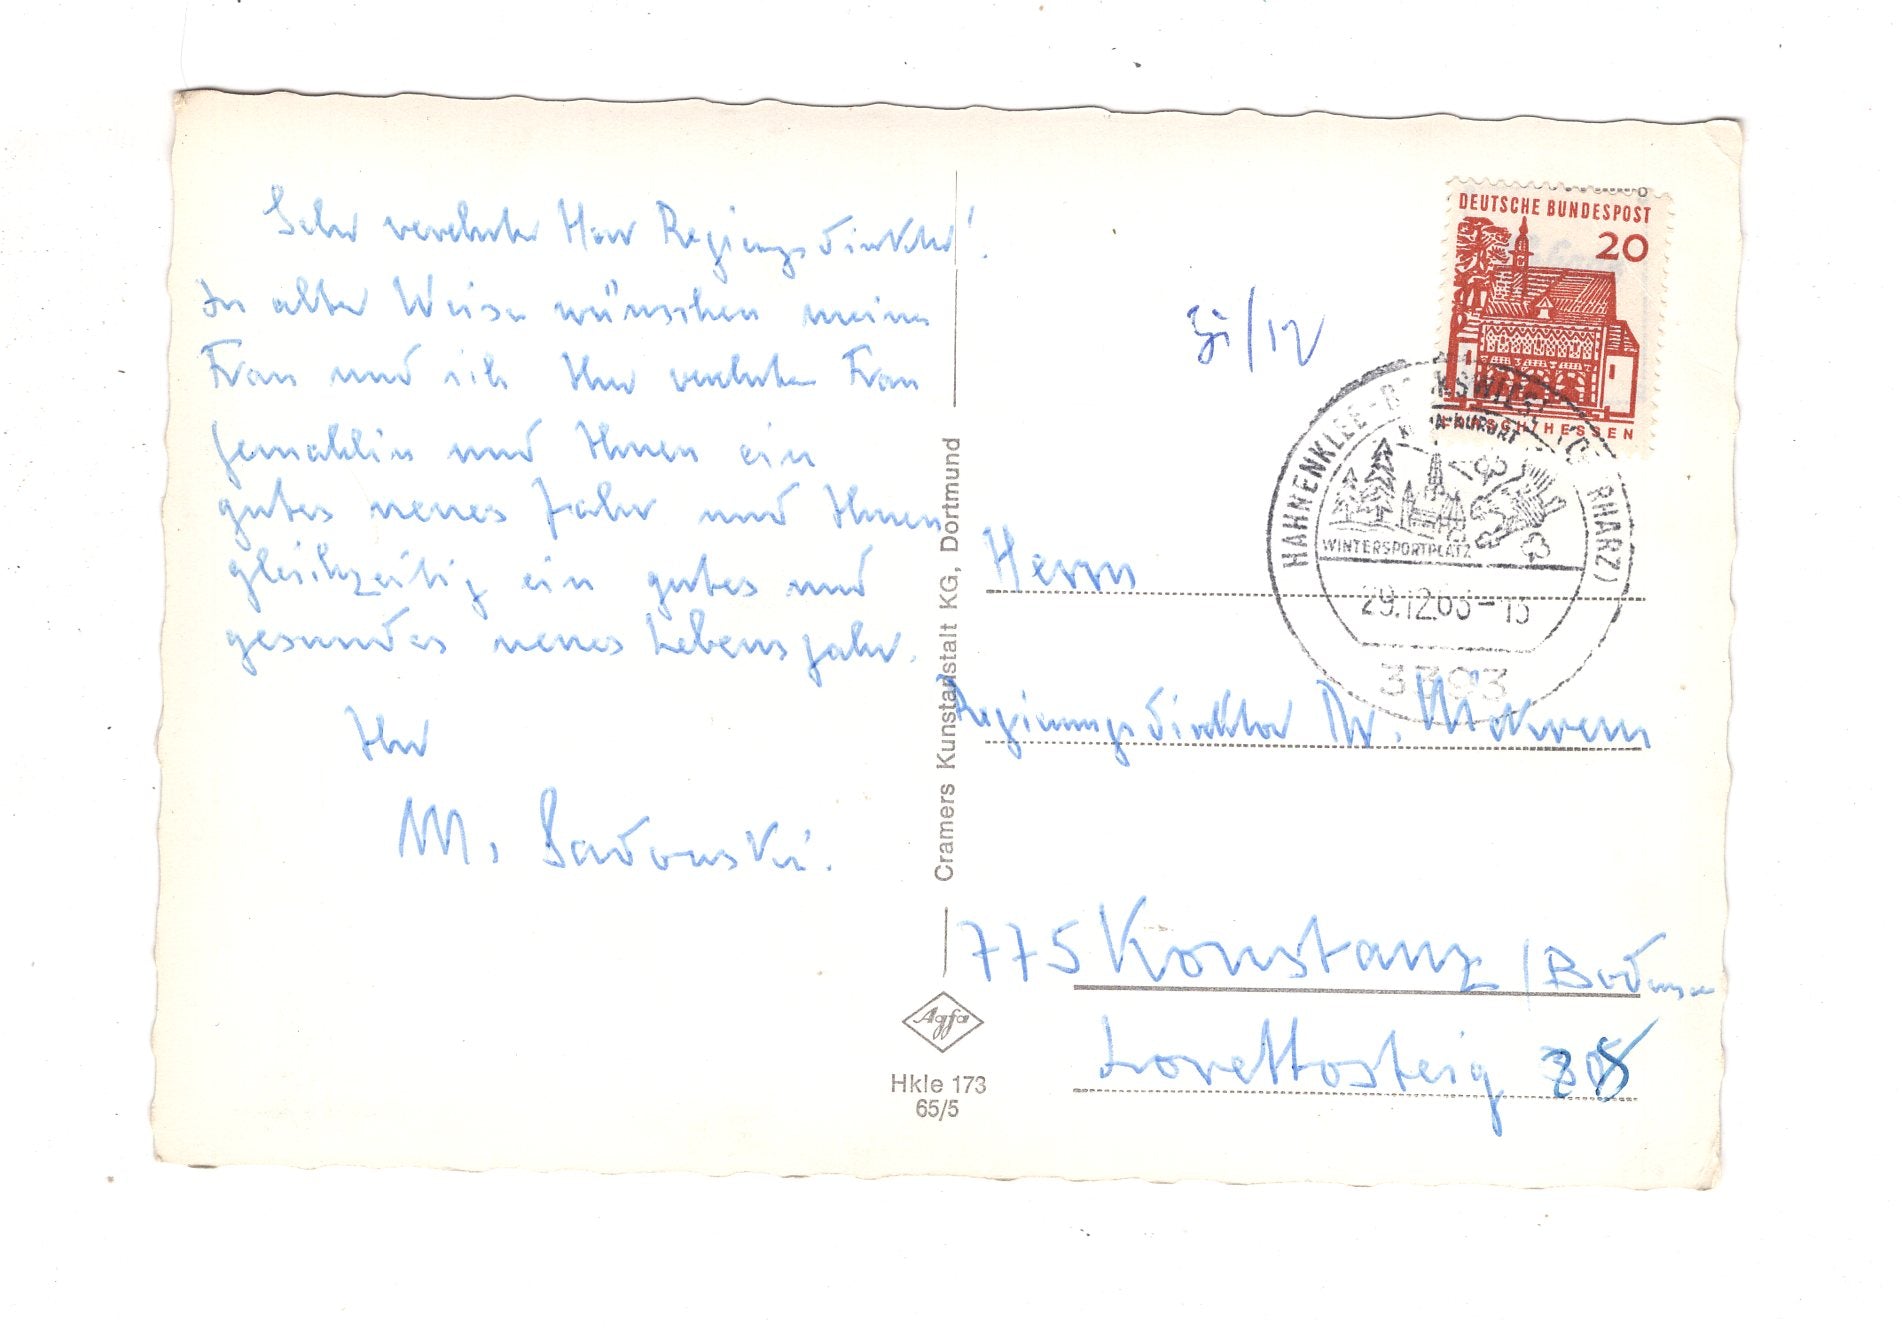 Sehr verehrter Herr Regierungsdirektor!
In alter Weise wünschen meine
Frau und ich Ihrer verehrten Frau
Gemahlin und Ihnen ein
gutes neues Jahr und Ihnen
gleichzeitig ein gutes und
gesundes neues Lebensjahr.
Ihr
M. Sadowski.
Cramers Kunstanstalt KG, Dortmund
Agfa
Hkle 173
65/5
DEUTSCHE BUNDESPOST
20
LORSCH/HESSEN
31/12
HAHNENKLEE-BOCKSWIESE (OBERHARZ)
KURORT
WINTERSPORTPLATZ
29.12.65-13
3393
Herrn
Regierungsdirektor Dr.
775 Konstanz / Bodensee
Lorettosteig